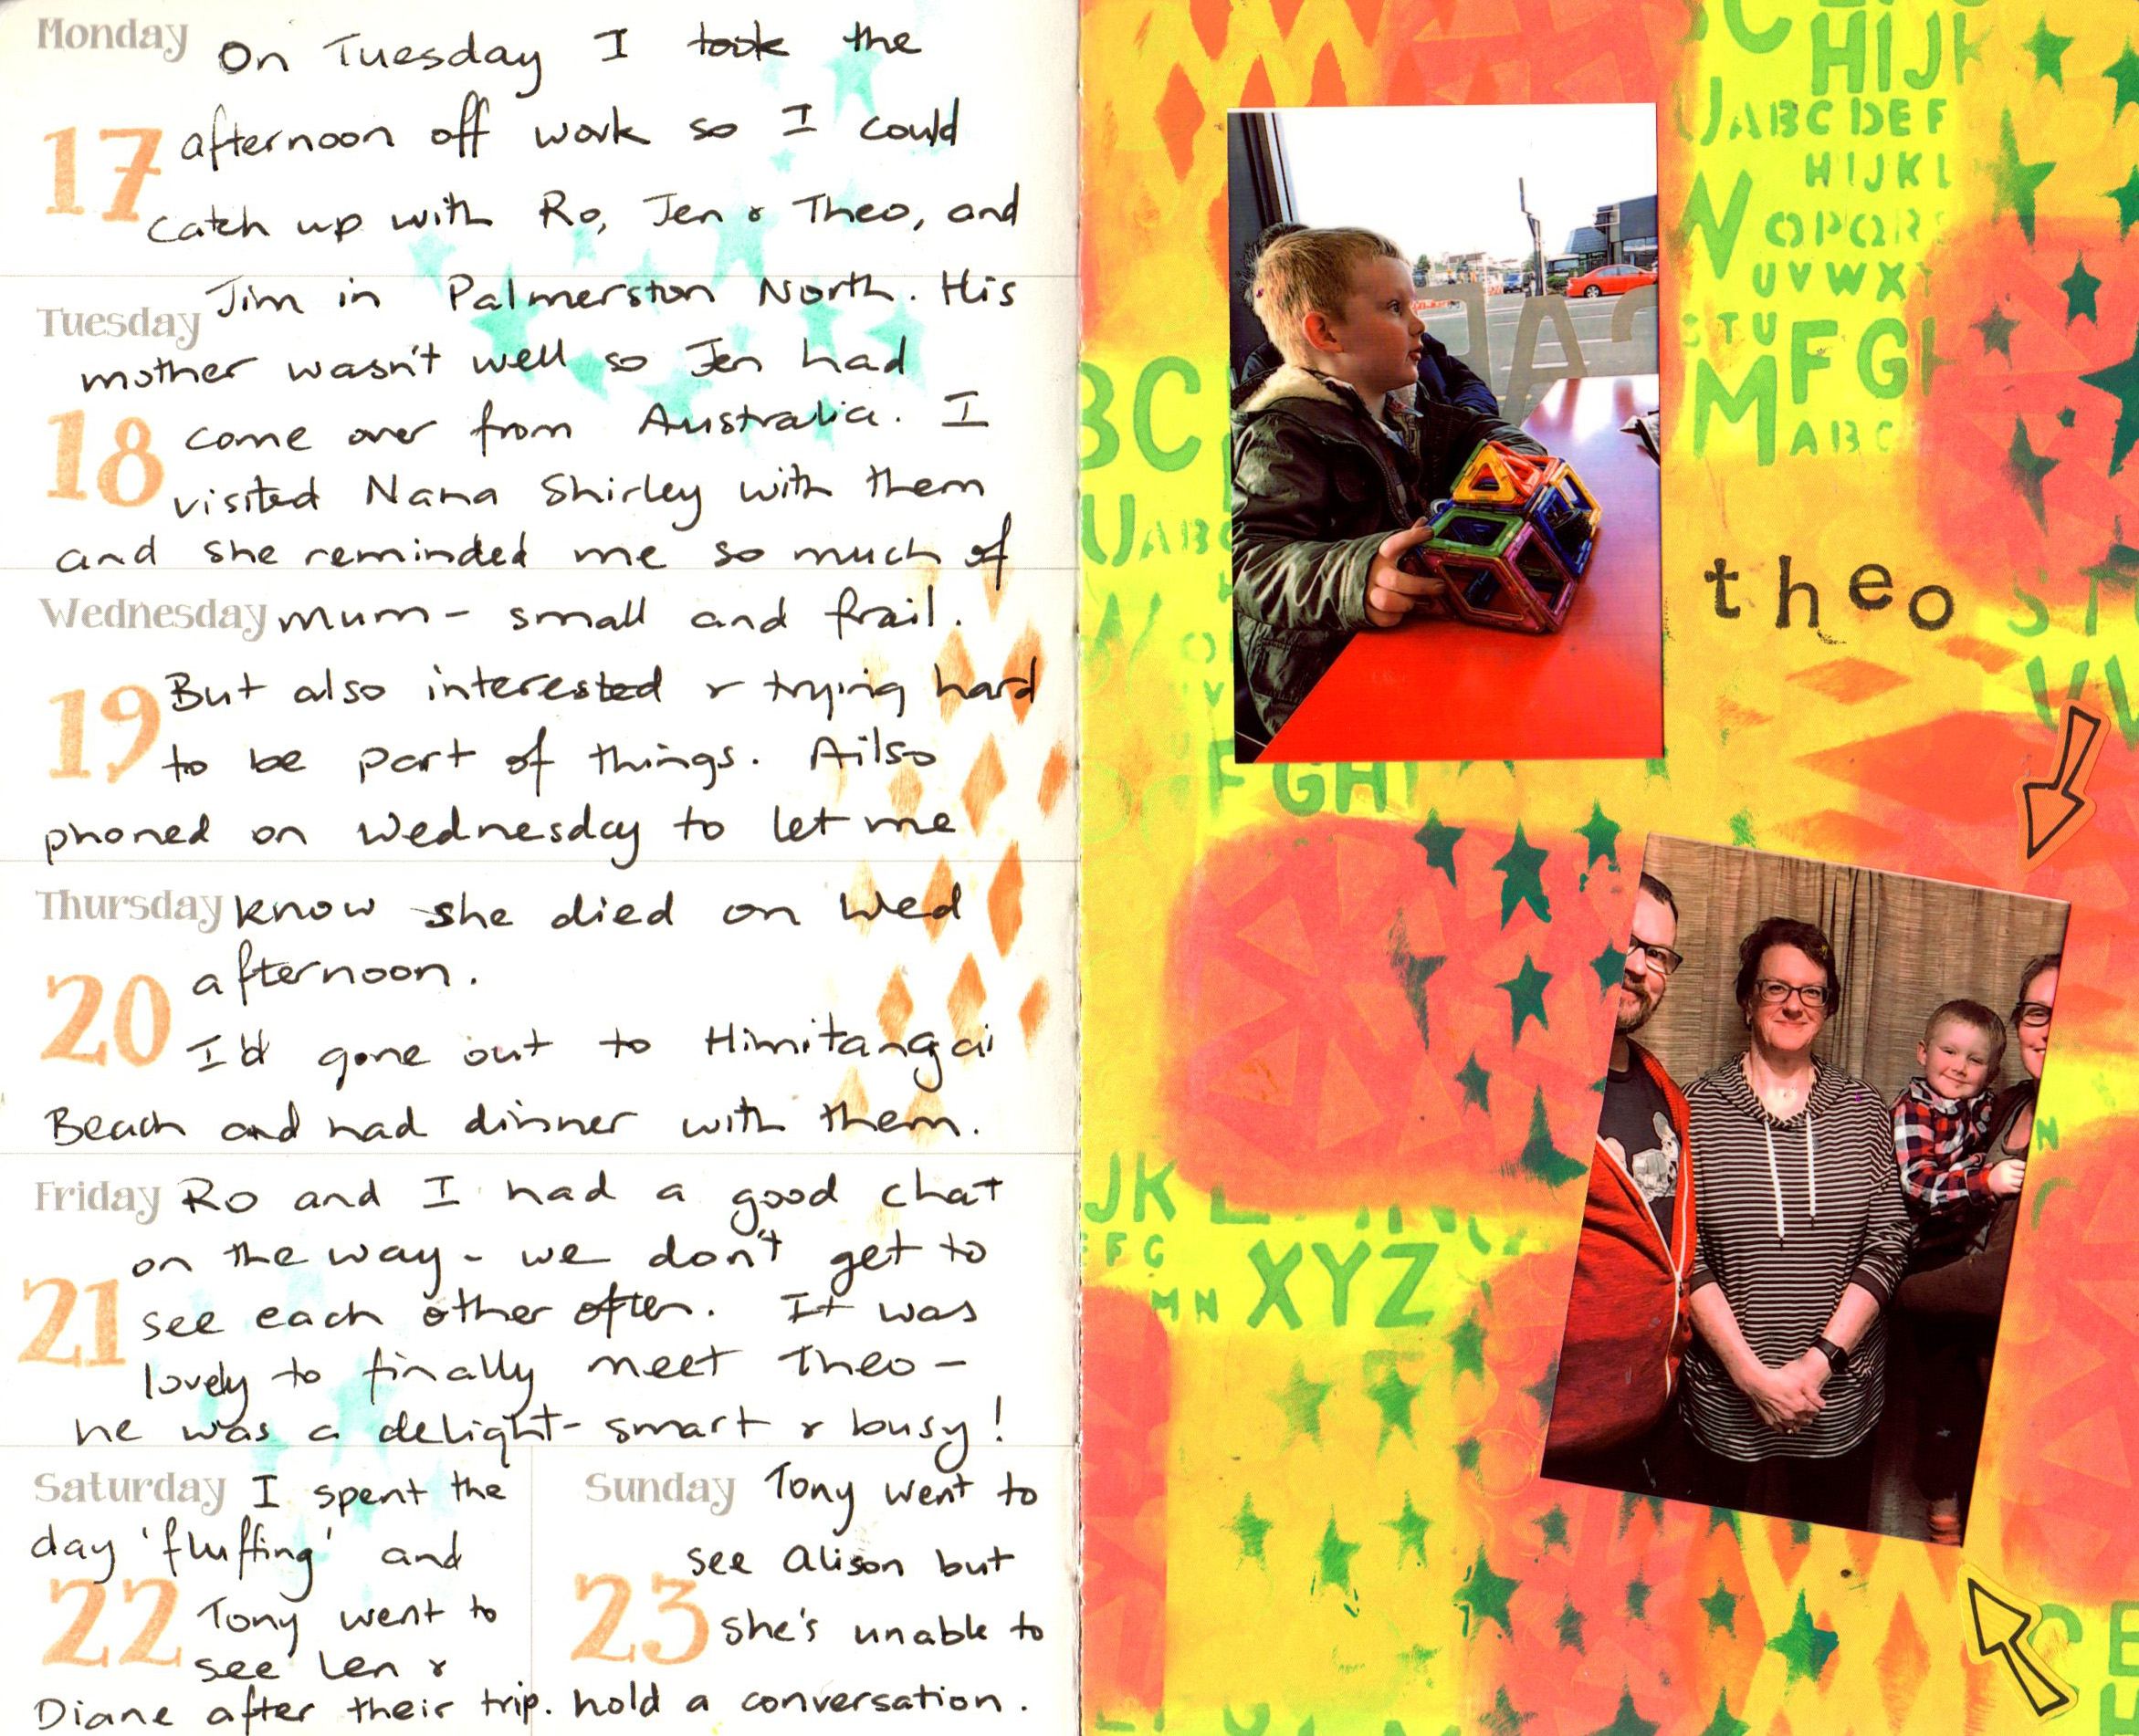 Monday On Tuesday I took the
17 afternoon off work so I could
catch up with Ro, Jen & Theo, and
Jim in Palmerston North. His
Tuesday
mother wasn't well so Jen had
18 come over from Australia. I
visited Nana Shirley with them
and she reminded me so much of
Wednesday mum - small and frail.
19 But also interested & trying hard
to be part of things. Ailso
phoned on Wednesday to let me
Thursday know she died on Wed
20 afternoon.
I'd gone out to Himitangai
Beach and had dinner with them.
Friday Ro and I had a good chat
on the way - we don't get to
21 see each other often. It was
lovely to finally meet Theo -
he was a delight - smart & busy!
Saturday I spent the
day 'fluffing' and
22 Tony went to
see Len &
Diane after their trip.
Sunday Tony went to
see Alison but
23 she's unable to
hold a conversation.
HIJK
ABCDEF
HIJKL
OPQR
UVWX
STU
FG
M
ABC
BC
UABC
theo
FGH
JK
EFG
MN
XYZ